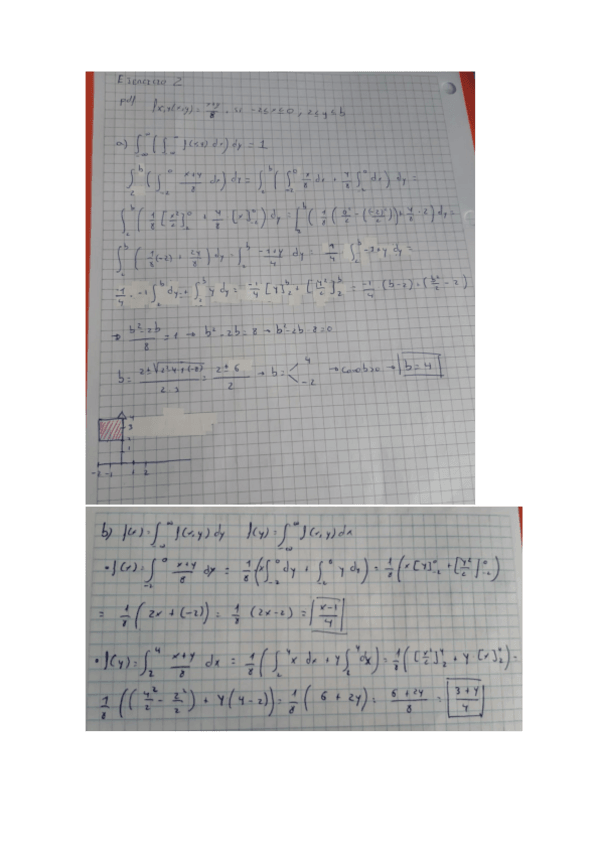 Ejercicio 2
pdf f(x,y)(x,y) = x+y/8 si -2≤x≤0, 2≤y≤b
a) ∫_{-∞}^{∞} (∫_{-∞}^{∞} f(x,y) dx) dy = 1
∫_2^b (∫_{-2}^0 x+y/8 dx) dy = ∫_2^b (∫_{-2}^0 x/8 dx + y/8 ∫_{-2}^0 dx) dy =
∫_2^b (1/8 [x²/2]_{-2}^0 + y/8 [x]_{-2}^0) dy = ∫_2^b (1/8 (0²/2 - (-2)²/2) + y/8 · 2) dy =
∫_2^b (1/8 (-2) + 2y/8) dy = ∫_2^b -1+y/4 dy = 1/4 ∫_2^b -1+y dy =
1/4 · -1 ∫_2^b dy + ∫_2^b y dy = -1/4 [y]_2^b + [y²/2]_2^b = -1/4 (b-2) + (b²/2 - 2)
→ b²-2b/8 = 1 → b²-2b=8 → b²-2b-8=0
b = 2±√2²-4·1·(-8)/2·1 = 2±6/2 → b = 4 -2 → como b>0 → b=4
4
3
2
1
-2 -1 1 2
b) f(x) = ∫_{-∞}^{∞} f(x,y) dy f(y) = ∫_{-∞}^{∞} f(x,y) dx
• f(x) = ∫_{-2}^0 x+y/8 dx = 1/8 (x∫_{-2}^0 dy + ∫_{-2}^0 y dy) = 1/8 (x[y]_{-2}^0 + [y²/2]_{-2}^0)
= 1/8 (2x + (-2)) = 1/8 (2x-2) = x-1/4
• f(y) = ∫_2^4 x+y/8 dx = 1/8 (∫_2^4 x dx + y∫_2^4 dx) = 1/8 ([x²/2]_2^4 + y [x]_2^4) =
1/8 ((4²/2 - 2²/2) + y(4-2)) = 1/8 (6 + 2y) = 6+2y/8 = 3+y/4